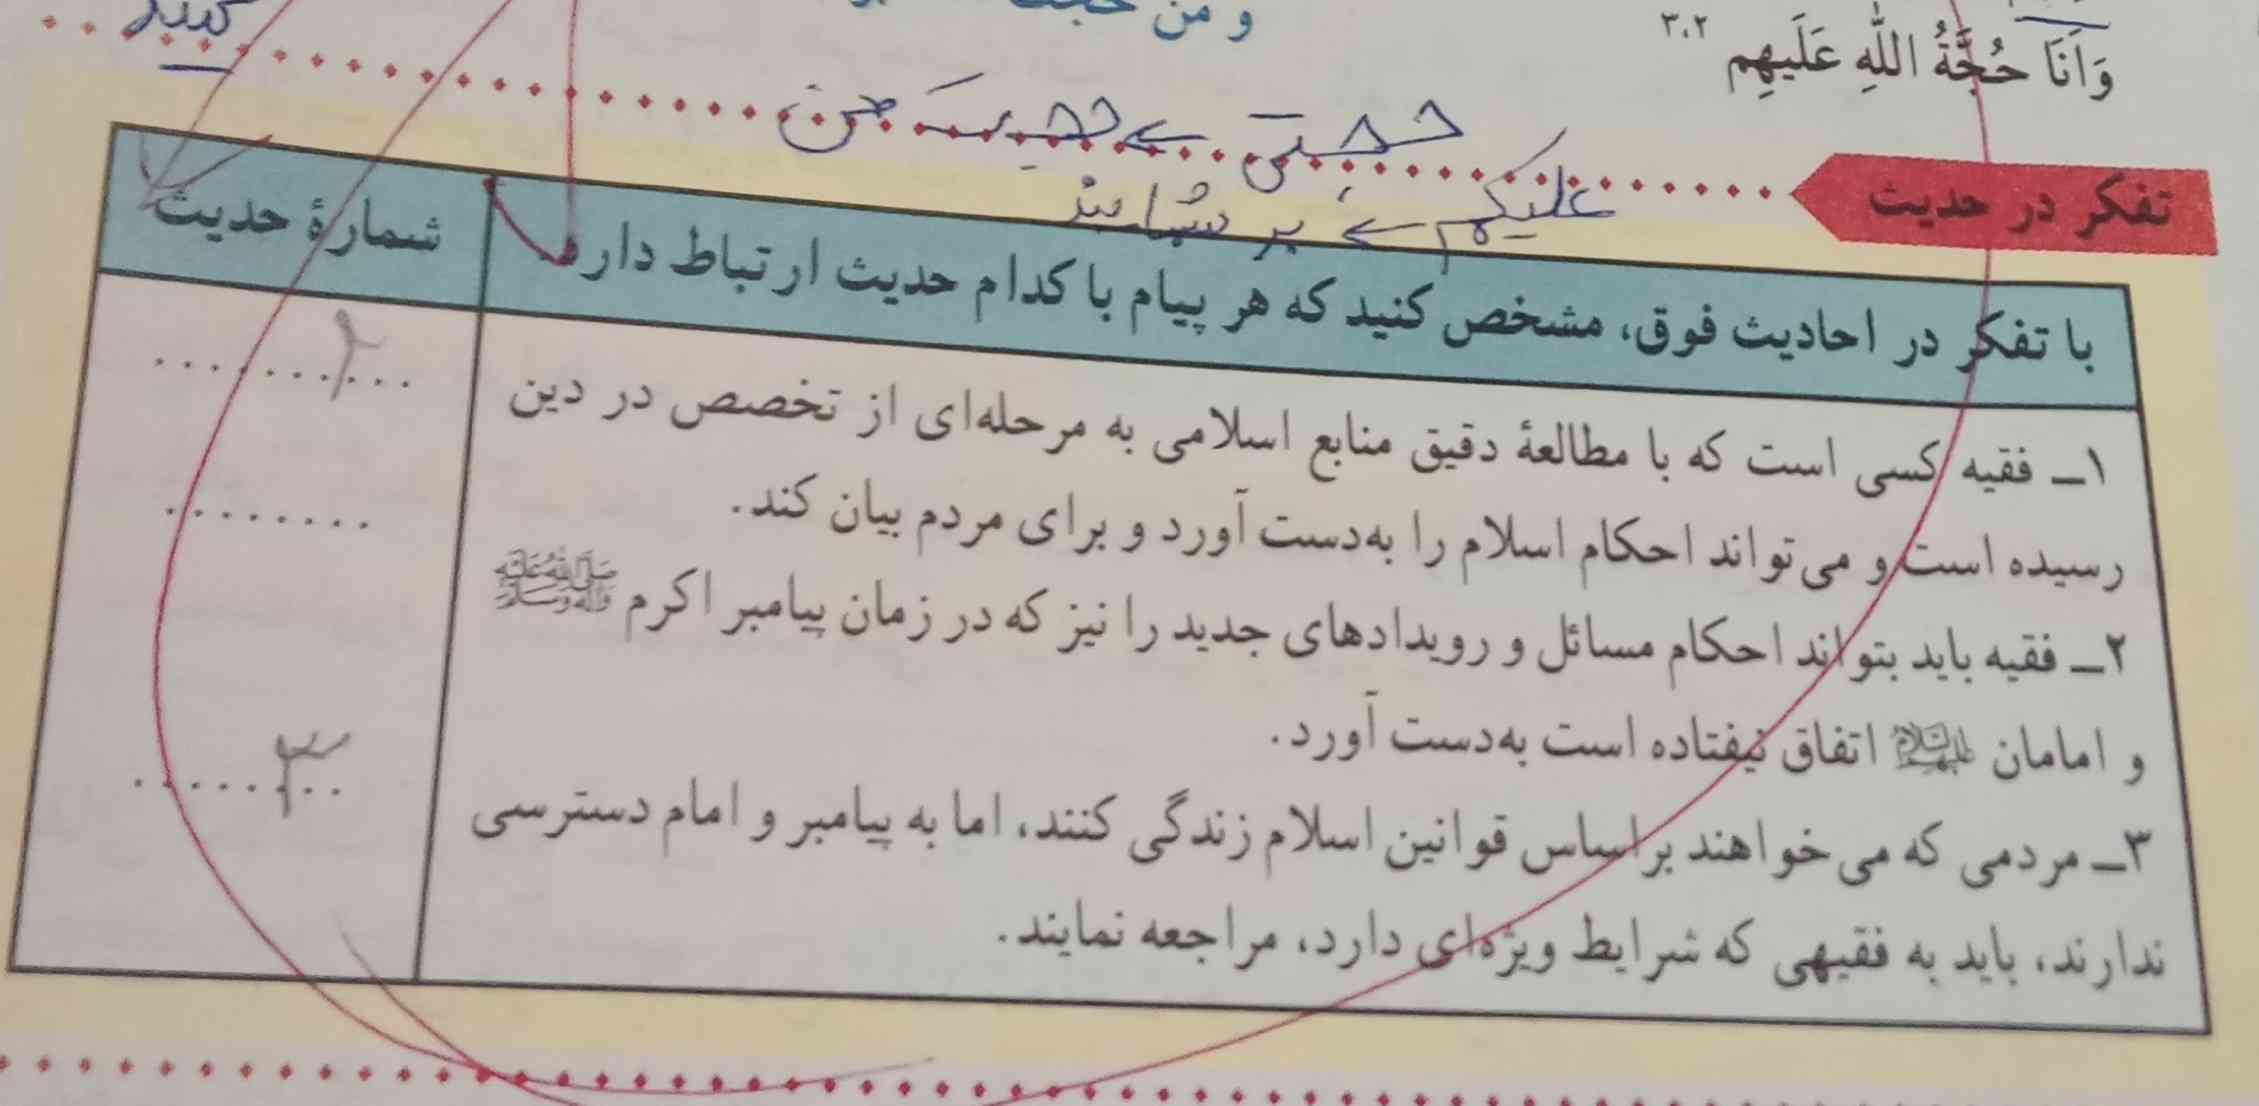 و من
وَاَنَا حُجَّةُ اللّٰهِ عَلَيهِم ۳،۲
حجتی ← حجت من
علیکم ← بر شمایند
تفکر در حدیث
با تفکر در احادیث فوق، مشخص کنید که هر پیام با کدام حدیث ارتباط دارد
شمارهٔ حدیث
۱ــ فقیه کسی است که با مطالعهٔ دقیق منابع اسلامی به مرحله‌ای از تخصص در دین
۲
رسیده است و می‌تواند احکام اسلام را به‌دست آورد و برای مردم بیان کند.
........
۲ــ فقیه باید بتواند احکام مسائل و رویدادهای جدید را نیز که در زمان پیامبر اکرم ﷺ
و امامان علیهم‌السلام اتفاق نیفتاده است به‌دست آورد.
۳ــ مردمی که می‌خواهند براساس قوانین اسلام زندگی کنند، اما به پیامبر و امام دسترسی
۳
ندارند، باید به فقیهی که شرایط ویژه‌ای دارد، مراجعه نمایند.